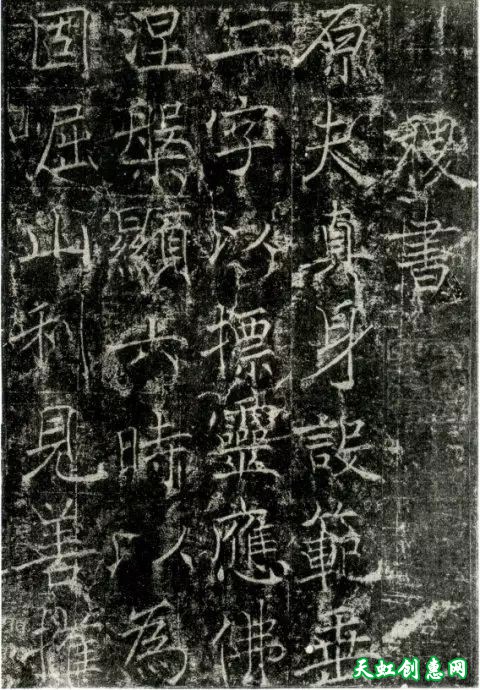 稷書
原夫真身設範垂
二字以摽靈應佛
涅槃顯六時以為
固崛山利見善權
天虹创惠网